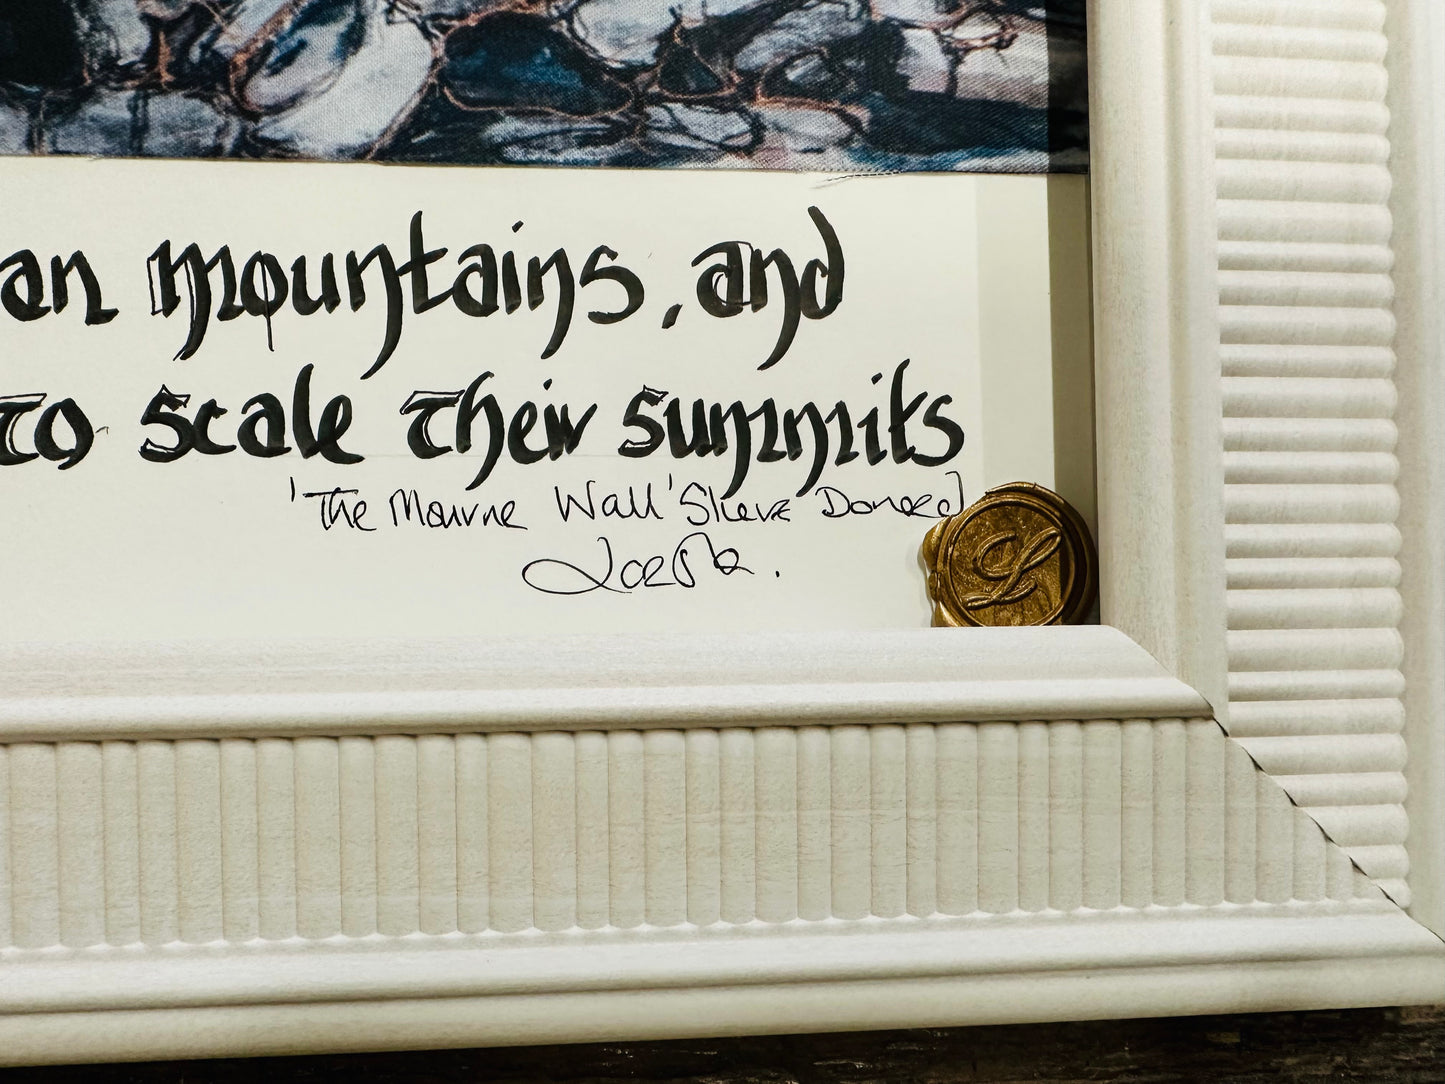 an mountains, and
to scale their summits
'The Mourne Wall' Slieve Donard
L